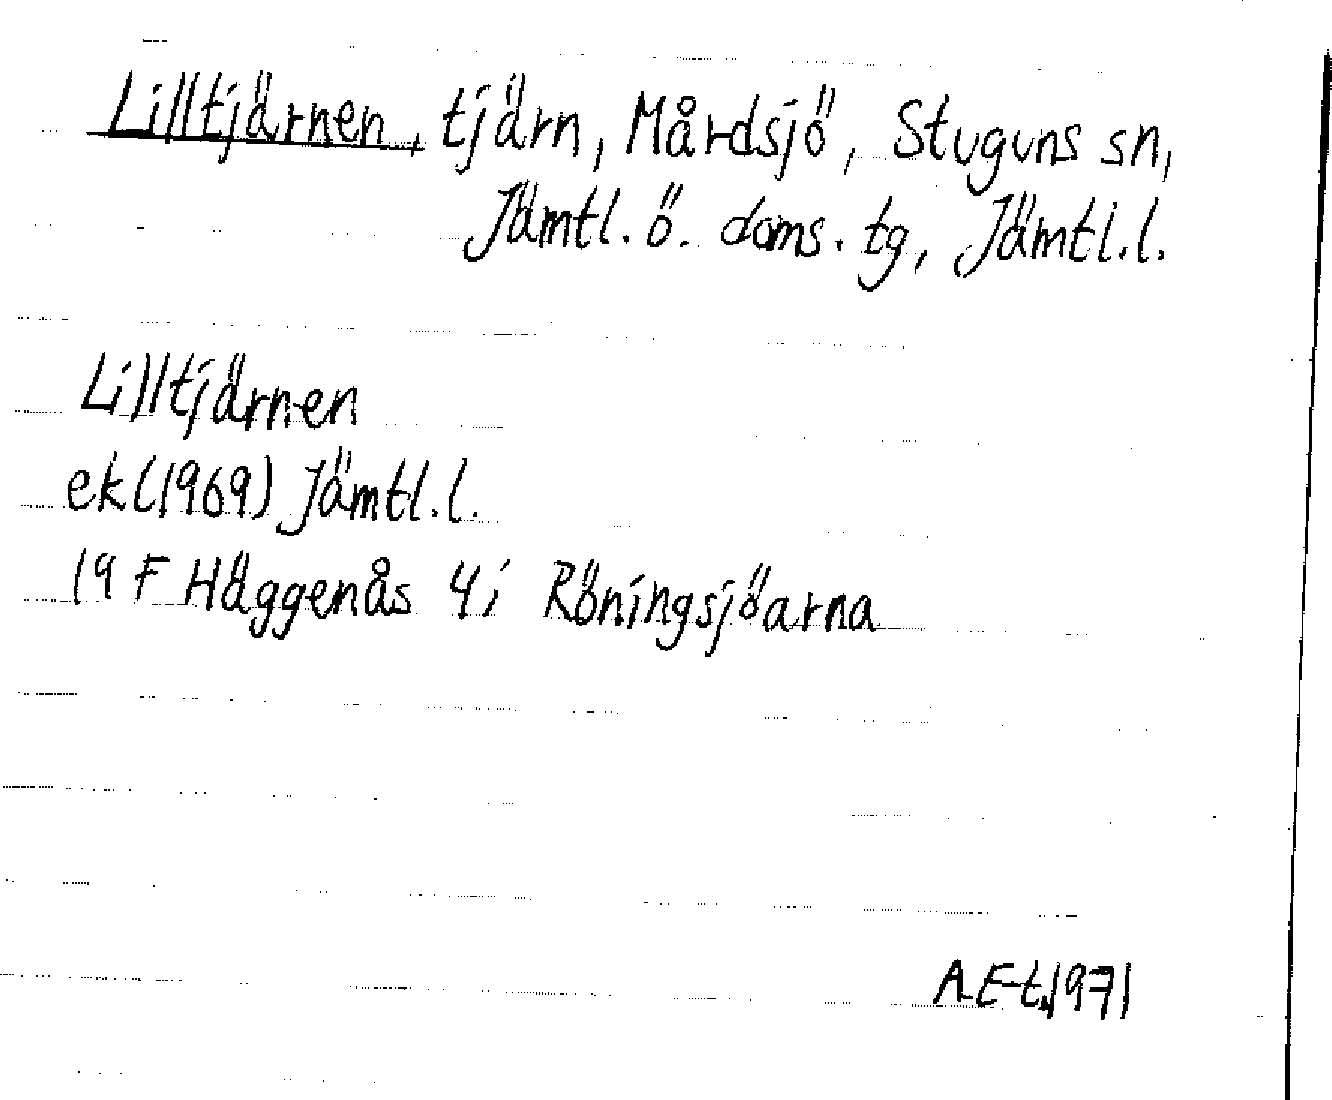 Lilltjärnen, tjärn, Mårdsjö, Stuguns sn,
Jämtl. ö. doms. tg, Jämtl. l.
Lilltjärnen
ek (1969) Jämtl. l.
19 F Häggenås 4 i Röningsjöarna
A E-t. 1971